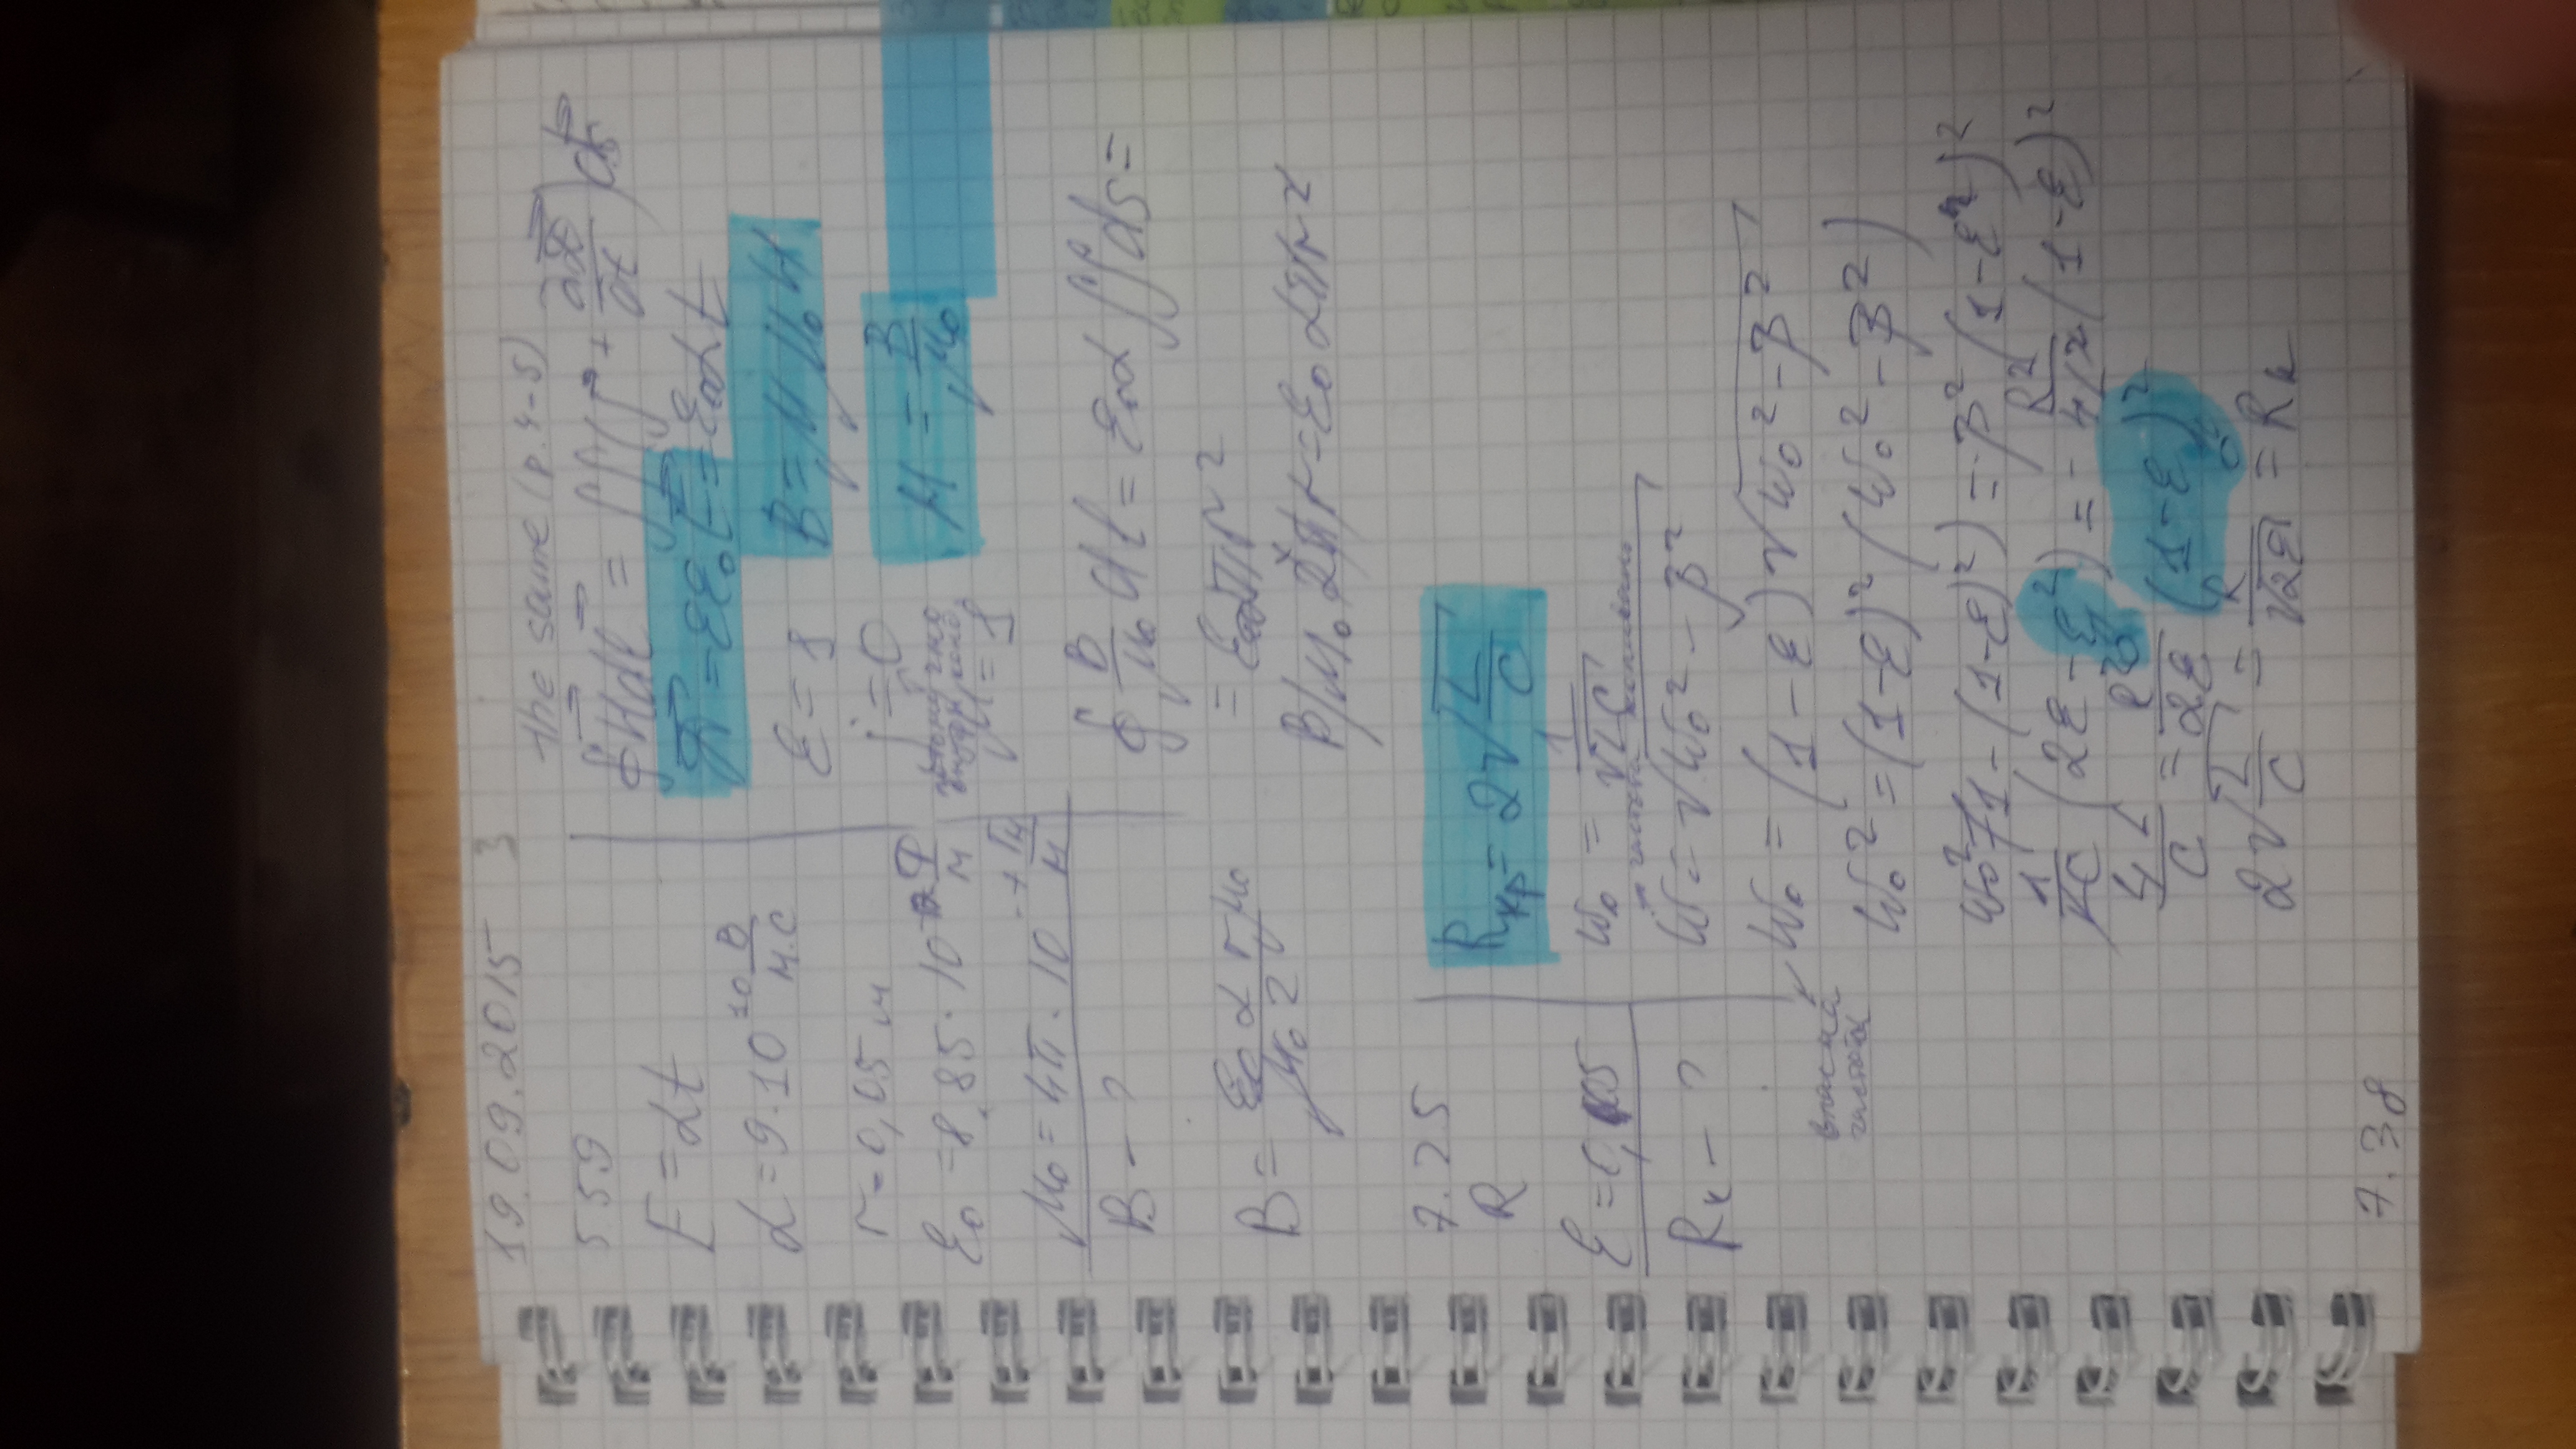 19.09.2015 3
the same (p. 4-5)
559
E = αt
α = 9·10^10 В/м·с
r = 0,05 м
ε₀ = 8,85·10^-12 Ф/м
μ₀ = 4π·10^-7 Гн/м
B - ?
B = ε₀αrμ₀/μ₀2
∮H⃗dl⃗ = ∫∫(j⃗ + ∂D⃗/∂t)ds⃗
D⃗ = εε₀E⃗ = ε₀αt
ε = 1 B = μμ₀H
j = 0 H = B/μ₀
потому что
μ = 1
∮ B/μ₀ dl = ε₀α∫∫ds =
= ε₀απr²
B/μ₀ 2πr = ε₀απr²
7.25
R
ε = 0,005
Rк - ?
Rкр = 2√(L/C)
ω₀ = 1/√(LC)
частота коливань
ω = √(ω₀² - β²)
ω₀ = (1-ε)√(ω₀² - β²)
власна
частота
ω₀² = (1-ε)²(ω₀² - β²)
ω₀²(1-(1-ε)²) = -β²(1-ε)²
1/LC (2ε - ε²) = - R²/4L² (1-ε)²
4L/C = R²/2ε (1-ε)²
2√(L/C) = R/√(2ε) = Rк
7.38